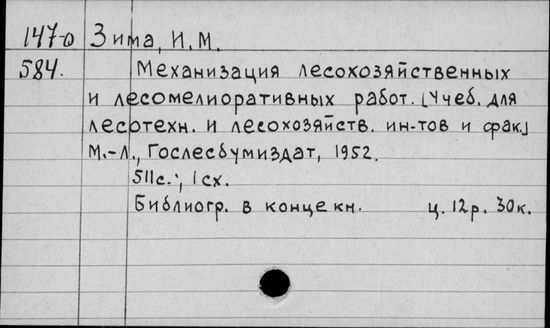 147-0 Зима, И.М.
584. Механизация лесохозяйственных
и лесомелиоративных работ. [Учеб. для
лесотехн. и лесохозяйств. ин-тов и фак.]
М.-Л., Гослесбумиздат, 1952.
511с.; 1 сх.
Библиогр. в конце кн. ц. 12р. 30к.